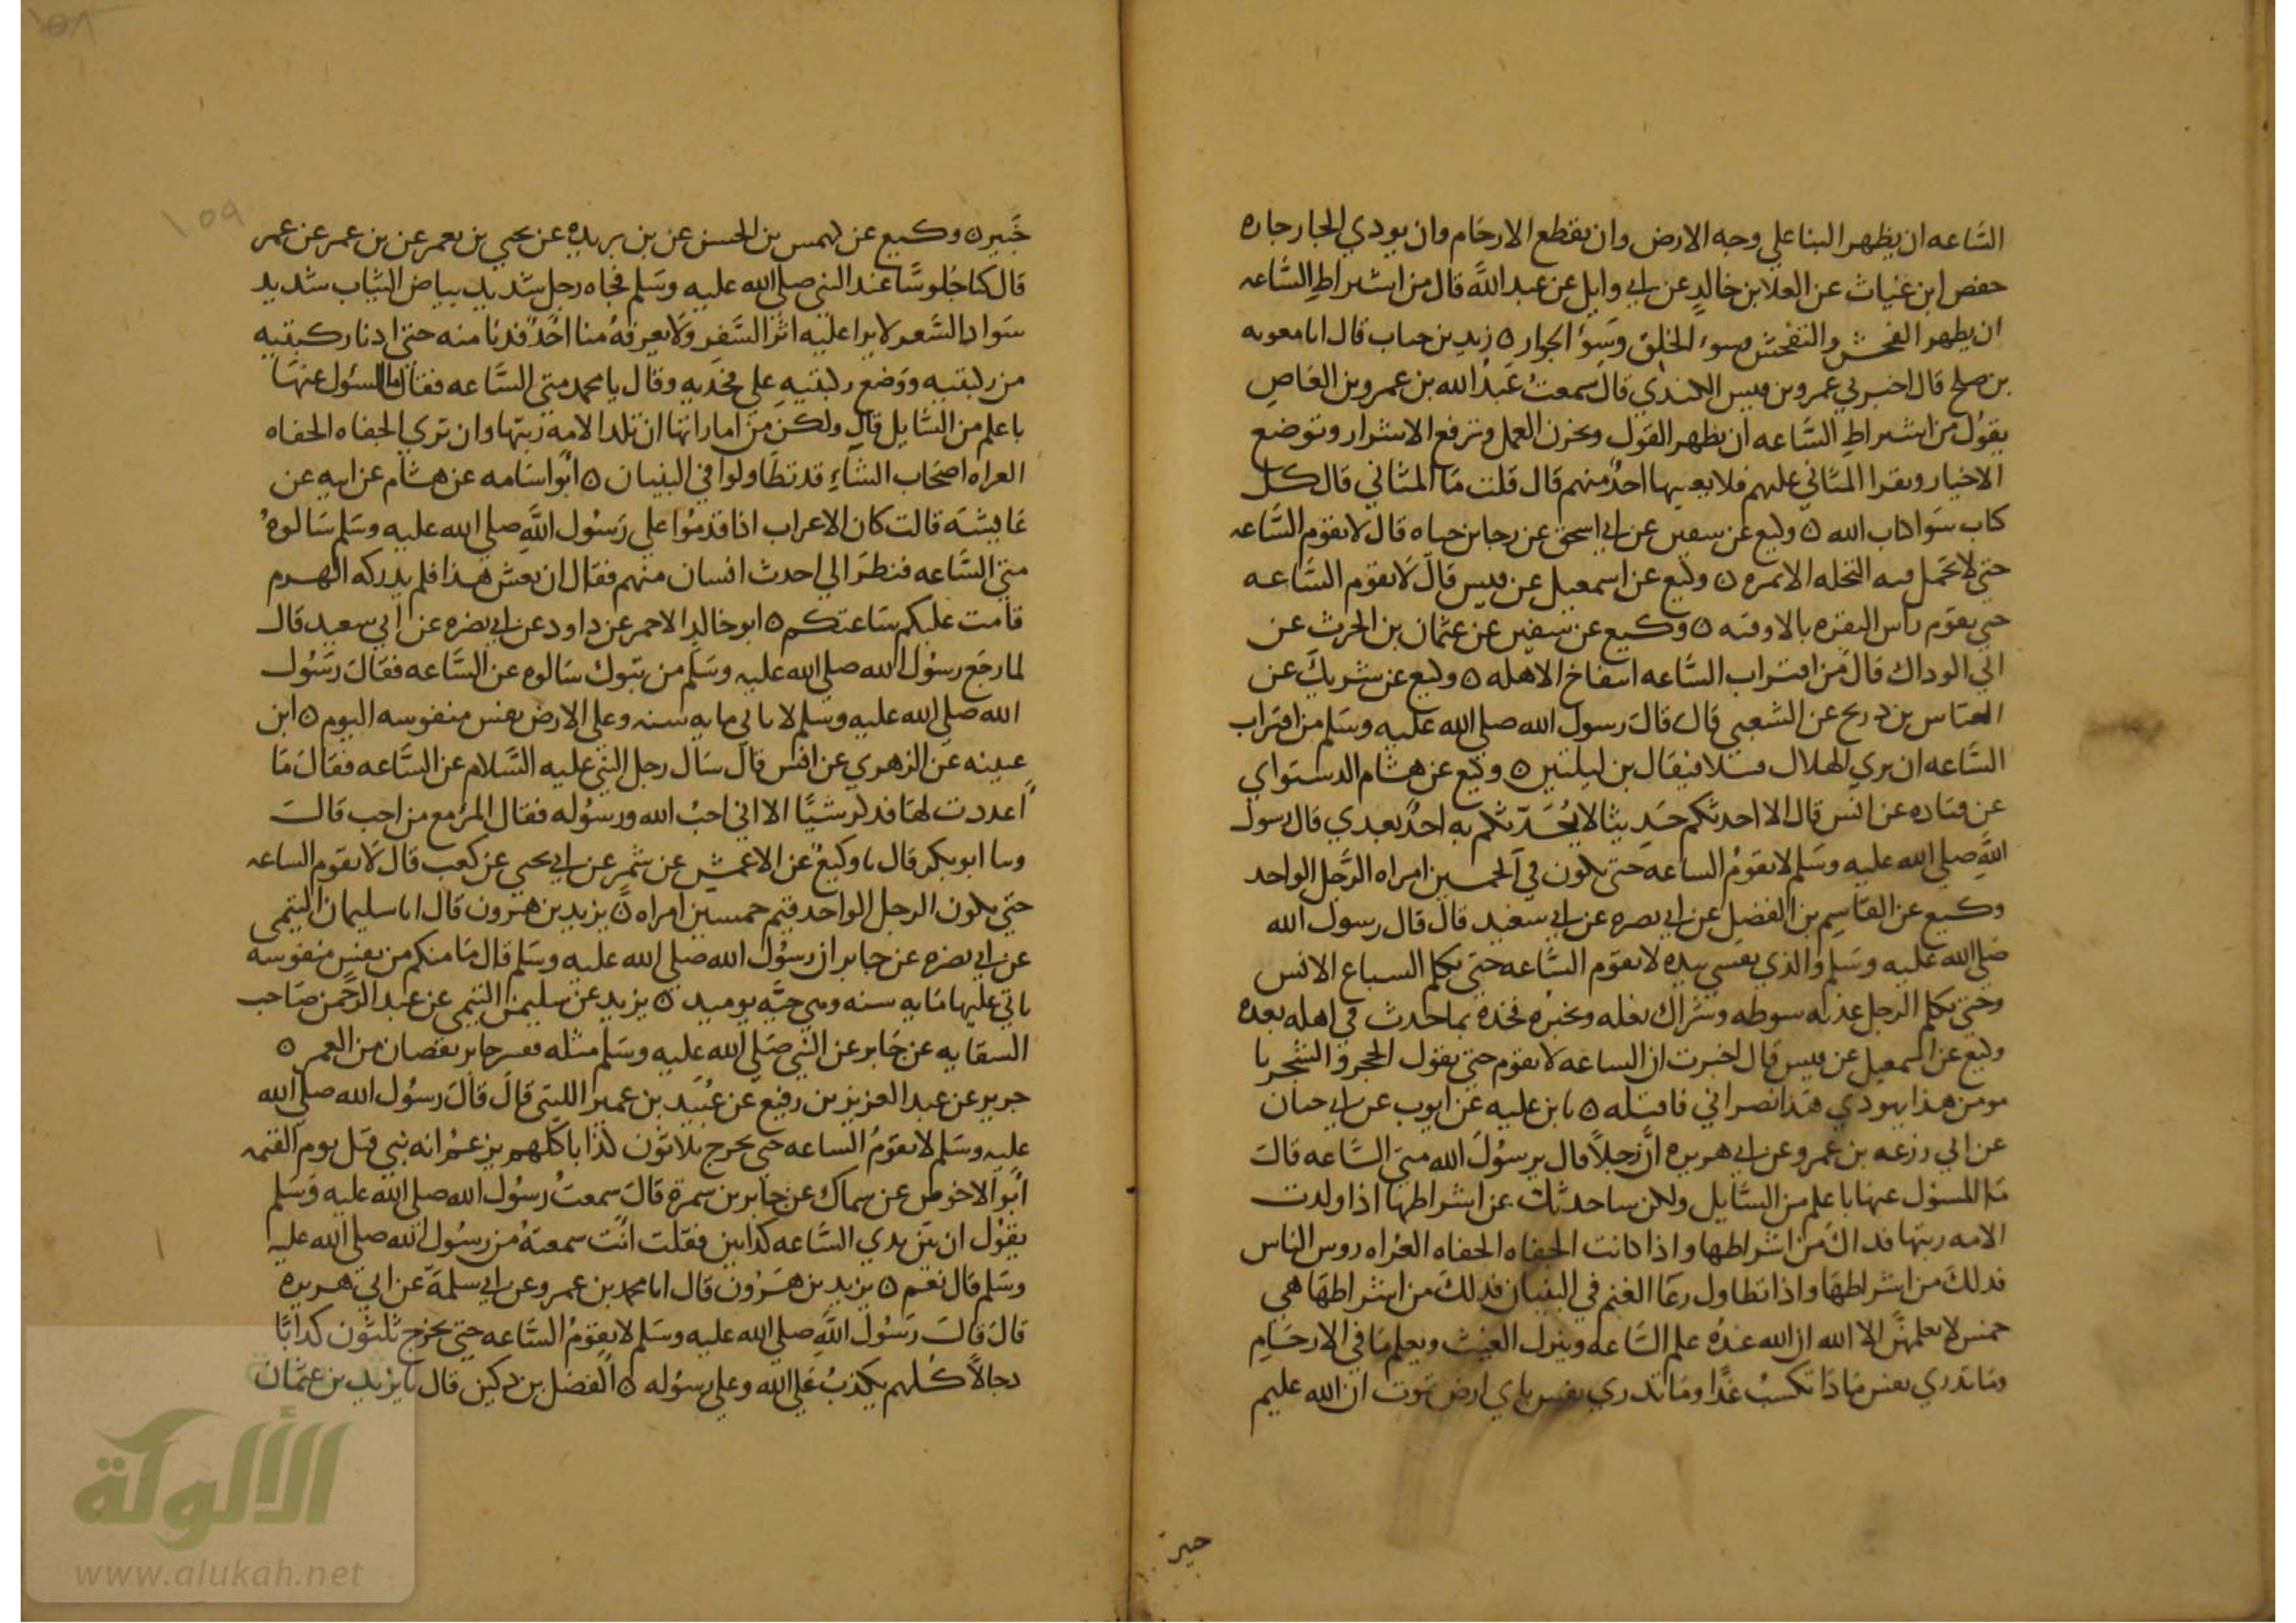 الساعه ان يظهر البنا علي وجه الارض وان يقطع الارحام وان يودي الجار جاره
حفص ابن غياث عن العلا بن خالد عن ابي وايل عن عبد الله قال من اشراط الساعه
ان يظهر الفحش والتفحش وسوء الخلق وسوء الجوار ٥ زيد بن حباب قال انا معويه
بن صلح قال اخبرني عمرو بن قيس الكندي قال سمعت عبد الله بن عمرو بن العاص
يقول من اشراط الساعه ان يظهر القول ويخزن العمل وترفع الاشرار وتوضع
الاخيار ويقرا المثاني عليهم فلا يعيبها احد منهم قال قلت ما المثاني قال كل
كتاب سوا كتاب الله ٥ وكيع عن سفين عن ابي اسحق عن رجا بن حياه قال لا تقوم الساعه
حتي لا تحمل فيه النخله الا تمره ٥ وكيع عن اسمعيل عن قيس قال لا تقوم الساعه
حتي يقوم راس البقره بالاوقيه ٥ وكيع عن سفين عن عثمان بن الحرث عن
ابي الوداك قال من اقتراب الساعه انتفاخ الاهله ٥ وكيع عن شريك عن
العباس بن ذريح عن الشعبي قال قال رسول الله صلي الله عليه وسلم من اقتراب
الساعه ان يري الهلال قبلا فيقال بن ليلتين ٥ وكيع عن هشام الدستواي
عن قتاده عن انس قال الا احدثكم حديثا لا يحدثكم به احد بعدي قال رسول
الله صلي الله عليه وسلم لا تقوم الساعه حتي يكون في الخمسين امراه الرجل الواحد
وكيع عن القاسم بن الفضل عن ابي نضره عن ابي سعيد قال قال رسول الله
صلي الله عليه وسلم والذي نفسي بيده لا تقوم الساعه حتي تكلم السباع الانس
وحتي تكلم الرجل عذبه سوطه وشراك نعله وتخبره فخذه بما حدث في اهله بعده
وكيع عن اسمعيل عن قيس قال اخبرت ان الساعه لا تقوم حتي يقول الحجر والشجر يا
مومن هذا يهودي هذا نصراني فاقتله ٥ نا بن عليه عن ايوب عن ابي حيان
عن ابي زرعه بن عمرو عن ابي هريره ان رجلا قال يرسول الله متي الساعه قال
ما المسئول عنها باعلم من السايل ولكن ساحدثك عن اشراطها اذا ولدت
الامه ربتها فذاك من اشراطها واذا كانت الحفاه الحفاه العراه روس الناس
فذلك من اشراطها واذا تطاول رعا الغنم في البنيان فذلك من اشراطها هي
خمس لا يعلمهن الا الله ان الله عنده علم الساعه وينزل الغيث ويعلم ما في الارحام
وما تدري نفس ماذا تكسب غدا وما تدري نفس باي ارض تموت ان الله عليم
خبير
١٥٨
١٥٩
خبير ٥ وكيع عن كهمس بن الحسن عن بن بريده عن يحيي بن يعمر عن بن عمر عن عمر
قال كنا جلوسا عند النبي صلي الله عليه وسلم فجاه رجل شديد بياض الثياب شديد
سواد الشعر لا يرا عليه اثر السفر ولا يعرفه منا احد فدنا منه حتي ادنا ركبتيه
من ركبتيه ووضع ركبتيه علي فخذيه وقال يا محمد متي الساعه فقال ما المسئول عنها
باعلم من السايل قال ولكن من اماراتها ان تلد الامه ربتها وان تري الحفاه الحفاه
العراه اصحاب الشاء قد تطاولوا في البنيان ٥ ابو اسامه عن هشام عن ابيه عن
عايشه قالت كان الاعراب اذا قدموا علي رسول الله صلي الله عليه وسلم سالوه
متي الساعه فنظر الي احدث انسان منهم فقال ان يعش هذا فلم يدركه الهرم
قامت عليكم ساعتكم ٥ ابو خالد الاحمر عن داود عن ابي نضره عن ابي سعيد قال
لما رجع رسول الله صلي الله عليه وسلم من تبوك سالوه عن الساعه فقال رسول
الله صلي الله عليه وسلم لا ياتي مايه سنه وعلي الارض نفس منفوسه اليوم ٥ ابن
عيينه عن الزهري عن انس قال سال رجل النبي عليه السلام عن الساعه فقال ما
اعددت لها فذكر شيا الا اني احب الله ورسوله فقال المرء مع من احب قال
ونا ابو بكر قال نا وكيع عن الاعمش عن شمر عن ابي يحيي عن كعب قال لا تقوم الساعه
حتي يكون الرجل الواحد قيم خمسين امراه ٥ يزيد بن هرون قال انا سليمان التيمي
عن ابي نضره عن جابر ان رسول الله صلي الله عليه وسلم قال ما منكم من نفس منفوسه
ياتي عليها مايه سنه وهي حيه يوميد ٥ يزيد عن سليمن التيمي عن عبد الرحمن صاحب
السقايه عن جابر عن النبي صلي الله عليه وسلم مثله ففسر جابر نقصان من العمر ٥
جرير عن عبد العزيز بن رفيع عن عبيد بن عمير الليثي قال قال رسول الله صلي الله
عليه وسلم لا تقوم الساعه حتي يخرج ثلاثون كذابا كلهم يزعم انه نبي قبل يوم القيمه
ابو الاحوص عن سماك عن جابر بن سمرة قال سمعت رسول الله صلي الله عليه وسلم
يقول ان بين يدي الساعه كذابين فقلت انت سمعته من رسول الله صلي الله عليه
وسلم قال نعم ٥ يزيد بن هرون قال انا محمد بن عمرو عن ابي سلمة عن ابي هريره
قال قال رسول الله صلي الله عليه وسلم لا تقوم الساعه حتي يخرج ثلثون كذابا
دجالا كلهم يكذب علي الله وعلي رسوله ٥ الفضل بن دكين قال نا يزيد بن عثمان
الألوكة
www.alukah.net